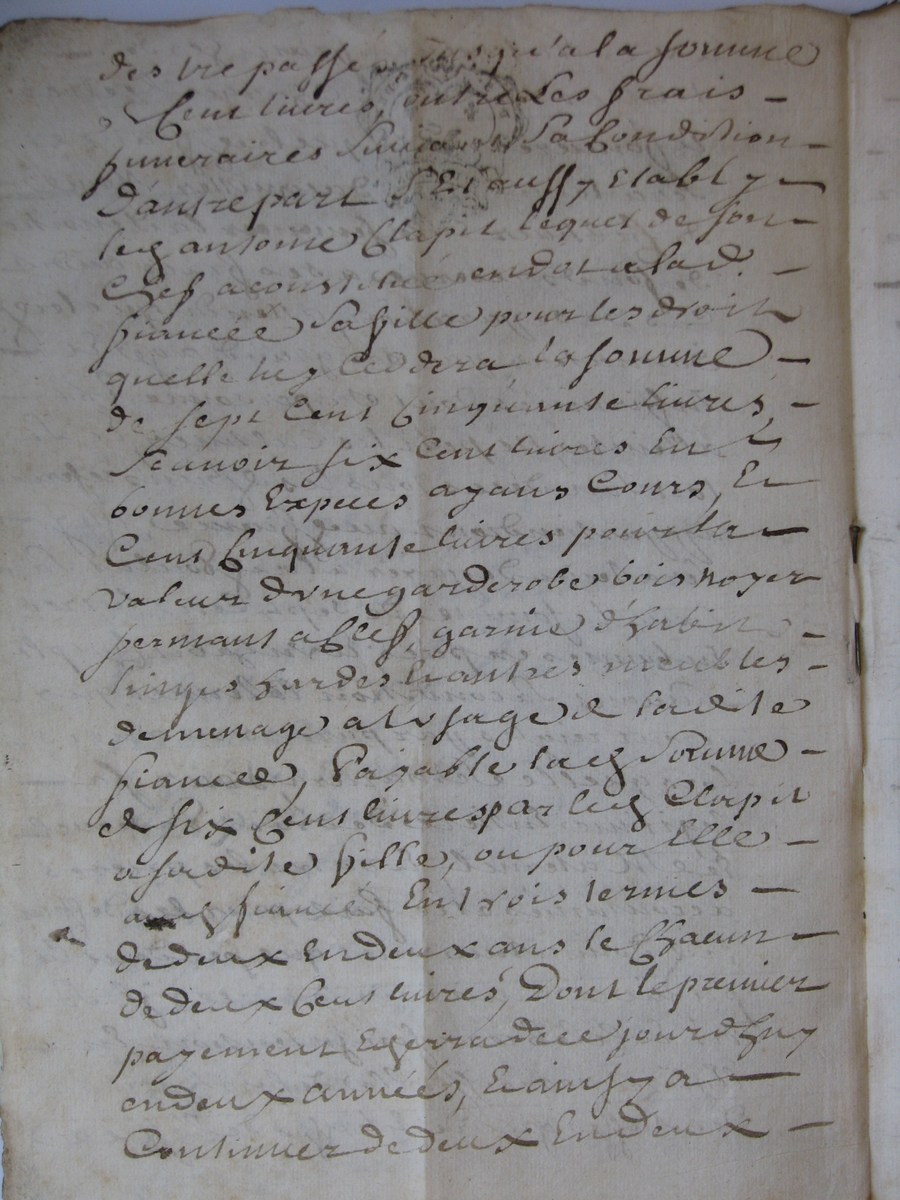 des trepassé jusqu'a la somme
Cent livres, outre les frais
funeraires suivant sa Condition
Dautrepart Et aussy Etably
led antoine Clapit lequel de son
Chef a constitué en dot a lad.
fiancee sa fille pour les droit
quelle luy ceddera la somme
de sept Cent Cinquante livres
scauoir six Cent livres En
bonnes Expeces ayans Cours, Et
Cent Cinquante livres pour la
valeur dvne garderobe bois noyer
fermant a Clef, garnie d'habit
linges hardes Et autres meubles
demenage a l'vsage de ladite
fiancee, Payable lad Somme
de six Cent livres par led Clapit
a sadite fille, ou pour Elle
aud fiance En trois termes
de deux En deux ans le Chacun
de deux Cent livrés, Dont le premier
payement Echerra de ce jourdhuy
en deux annéés, Et ainsy a
Continuer de deux En deux